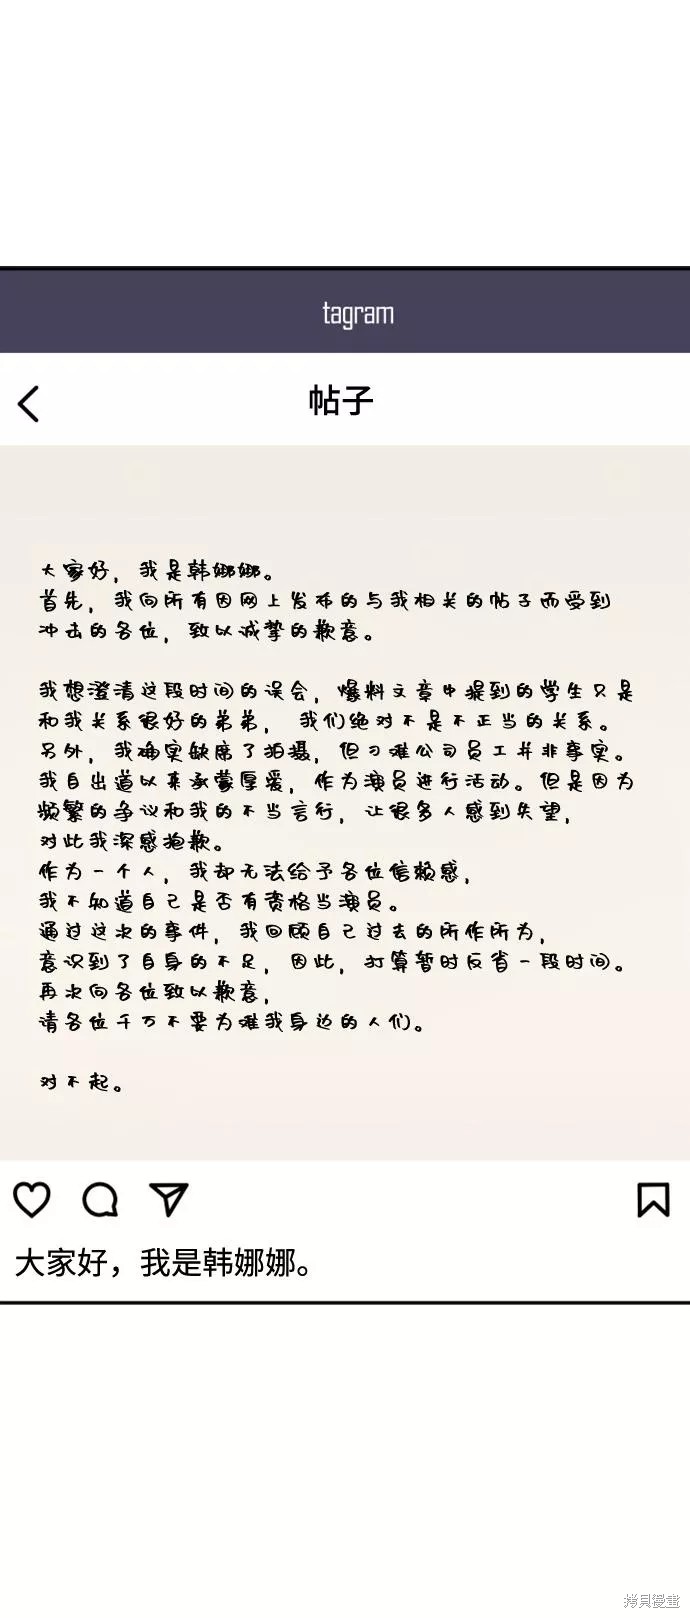 tagram
帖子
大家好，我是韩娜娜。
首先，我向所有因网上发布的与我相关的帖子而受到
冲击的各位，致以诚挚的歉意。
我想澄清这段时间的误会，爆料文章中提到的学生只是
和我关系很好的弟弟，我们绝对不是不正当的关系。
另外，我确实缺席了拍摄，但刁难公司员工并非事实。
我自出道以来承蒙厚爱，作为演员进行活动。但是因为
频繁的争议和我的不当言行，让很多人感到失望，
对此我深感抱歉。
作为一个人，我却无法给予各位信赖感，
我不知道自己是否有资格当演员。
通过这次的事件，我回顾自己过去的所作所为，
意识到了自身的不足，因此，打算暂时反省一段时间。
再次向各位致以歉意，
请各位千万不要为难我身边的人们。
对不起。
大家好，我是韩娜娜。
拷貝漫畫